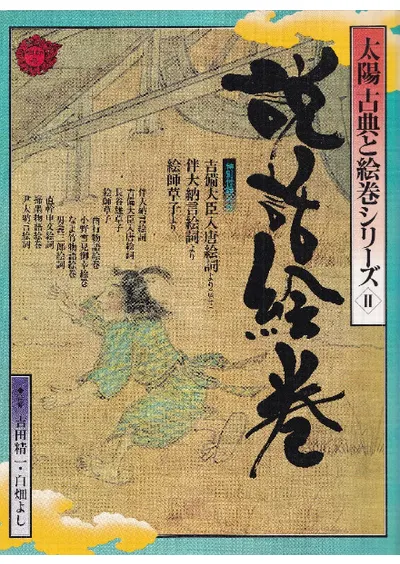 太陽古典と絵巻シリーズⅡ
説話絵巻
吉備大臣入唐絵詞より
伴大納言絵詞より
絵師草子より
伴大納言絵詞
吉備大臣入唐絵詞
長谷雄草子
絵師草子
西行物語絵巻
小野雪見御幸絵巻
なよ竹物語絵巻
男衾三郎絵詞
直幹申文絵詞
掃墨物語絵巻
尹大納言絵詞
吉田精一・白畑よし